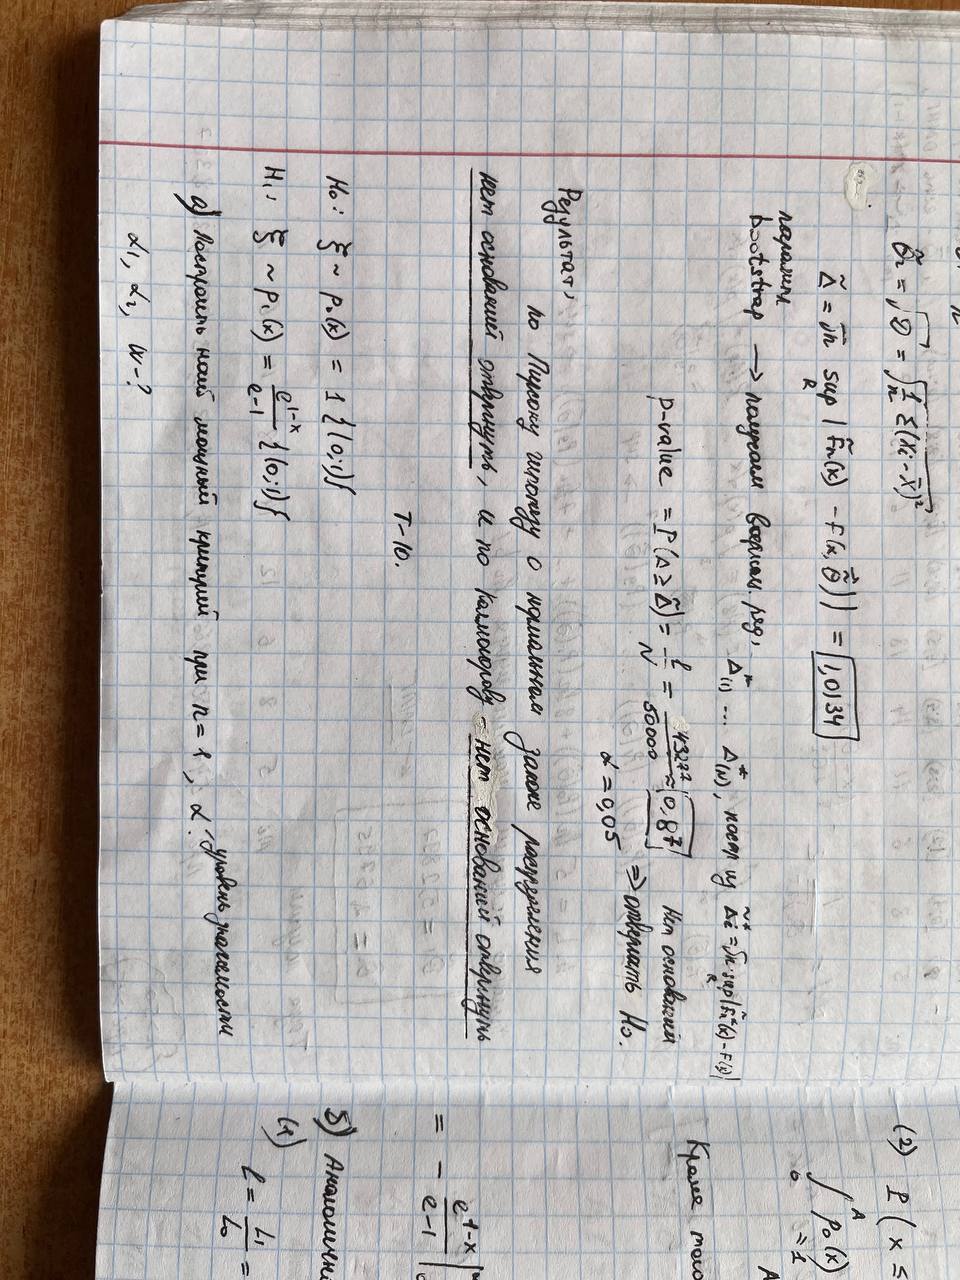 σ̃₂ = √D̃ = √(1/n Σ(Xi - X̄)²)
Δ̃ = √n sup_R | F̃n(x) - F(x, θ̃) | = 1,0134
bootstrap → получаем вариац. ряд, Δ*(1) ... Δ*(N), постр из Δ̃*i = √n · sup_R | F̃n*(x) - F(x) |
p-value = P(Δ ≥ Δ̃) = l/N = 43277/50000 ≈ 0,87 Нет оснований
α = 0,05 ⇒ отвергать H₀.
Результат,
по Пирсону гипотезу о нормальном законе распределения
нет оснований отвергнуть, и по Колмогорову - нет оснований отвергнуть
T-10.
H₀: ξ ~ p₀(x) = 1 {(0;1)}
H₁: ξ ~ p₁(x) = e^(1-x)/(e-1) {(0;1)}
а) Построить наиб мощный критерий при n = 1, α - уровень значимости
α₁, α₂, W-?
(2) P(x ≤
∫₀^A p₀(x)
= 1
A
Кроме того
= - e^(1-x)/(e-1) |
б) Аналогично
(1) l = L₁/L₀ =